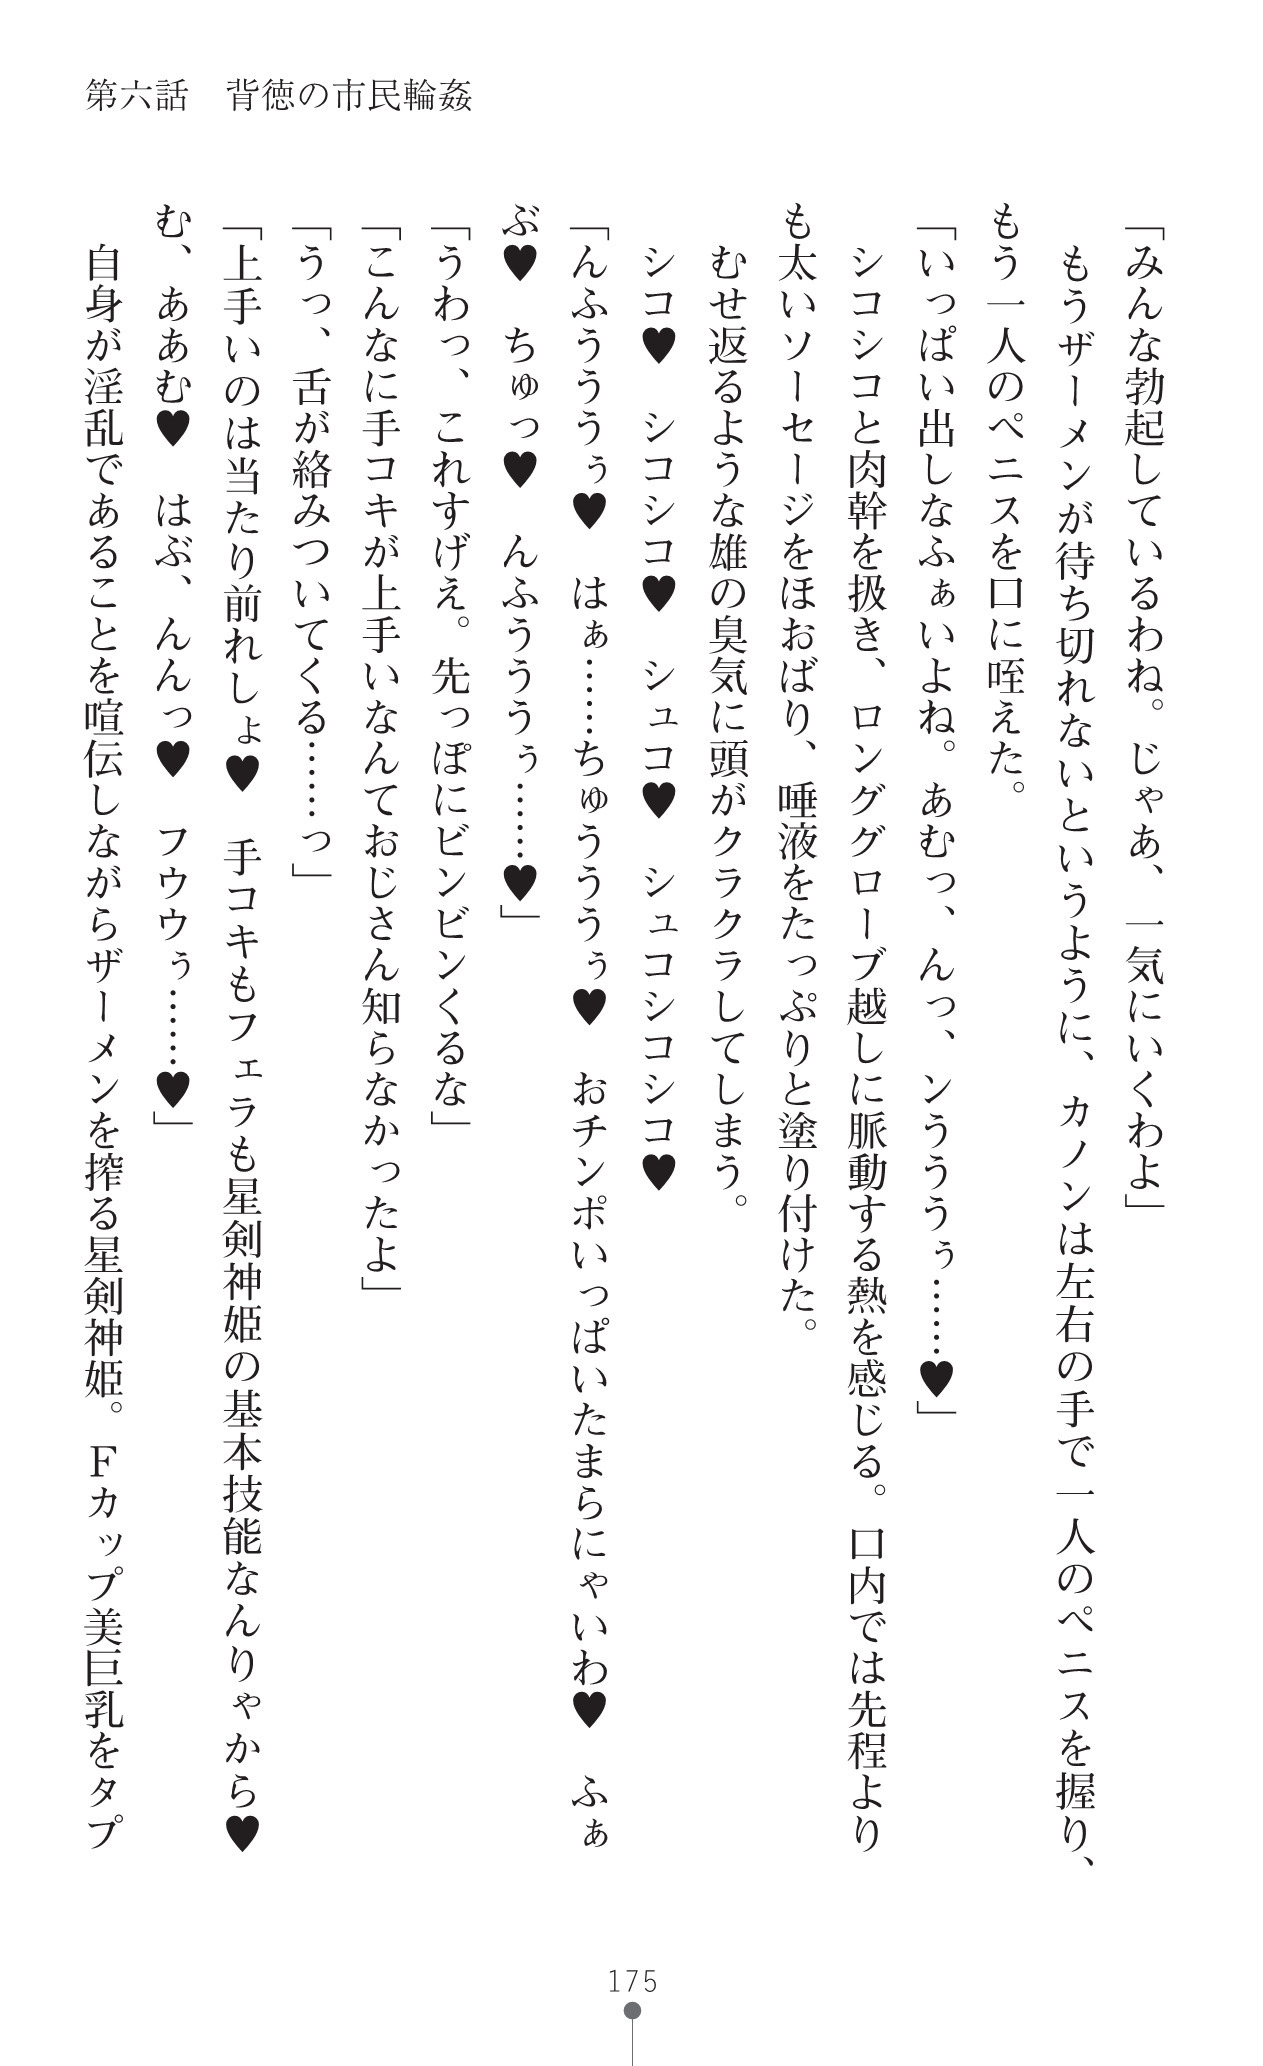 第六話　背徳の市民輪姦
「みんな勃起しているわね。じゃあ、一気にいくわよ」
　もうザーメンが待ち切れないというように、カノンは左右の手で一人のペニスを握り、
もう一人のペニスを口に咥えた。
「いっぱい出しなふぁいよね。あむっ、んっ、ンうううぅ……♥」
　シコシコと肉幹を扱き、ロンググローブ越しに脈動する熱を感じる。口内では先程より
も太いソーセージをほおばり、唾液をたっぷりと塗り付けた。
　むせ返るような雄の臭気に頭がクラクラしてしまう。
　シコ♥　シコシコ♥　シュコ♥　シュコシコシコ♥
「んふうううぅ♥　はぁ……ちゅうううぅ♥　おチンポいっぱいたまらにゃいわ♥　ふぁ
ぶ♥　ちゅっ♥　んふうううぅ……♥」
「うわっ、これすげえ。先っぽにビンビンくるな」
「こんなに手コキが上手いなんておじさん知らなかったよ」
「うっ、舌が絡みついてくる……っ」
「上手いのは当たり前れしょ♥　手コキもフェラも星剣神姫の基本技能なんりゃから♥
む、ああむ♥　はぶ、んんっ♥　フウウぅ……♥」
　自身が淫乱であることを喧伝しながらザーメンを搾る星剣神姫。Ｆカップ美巨乳をタプ
175